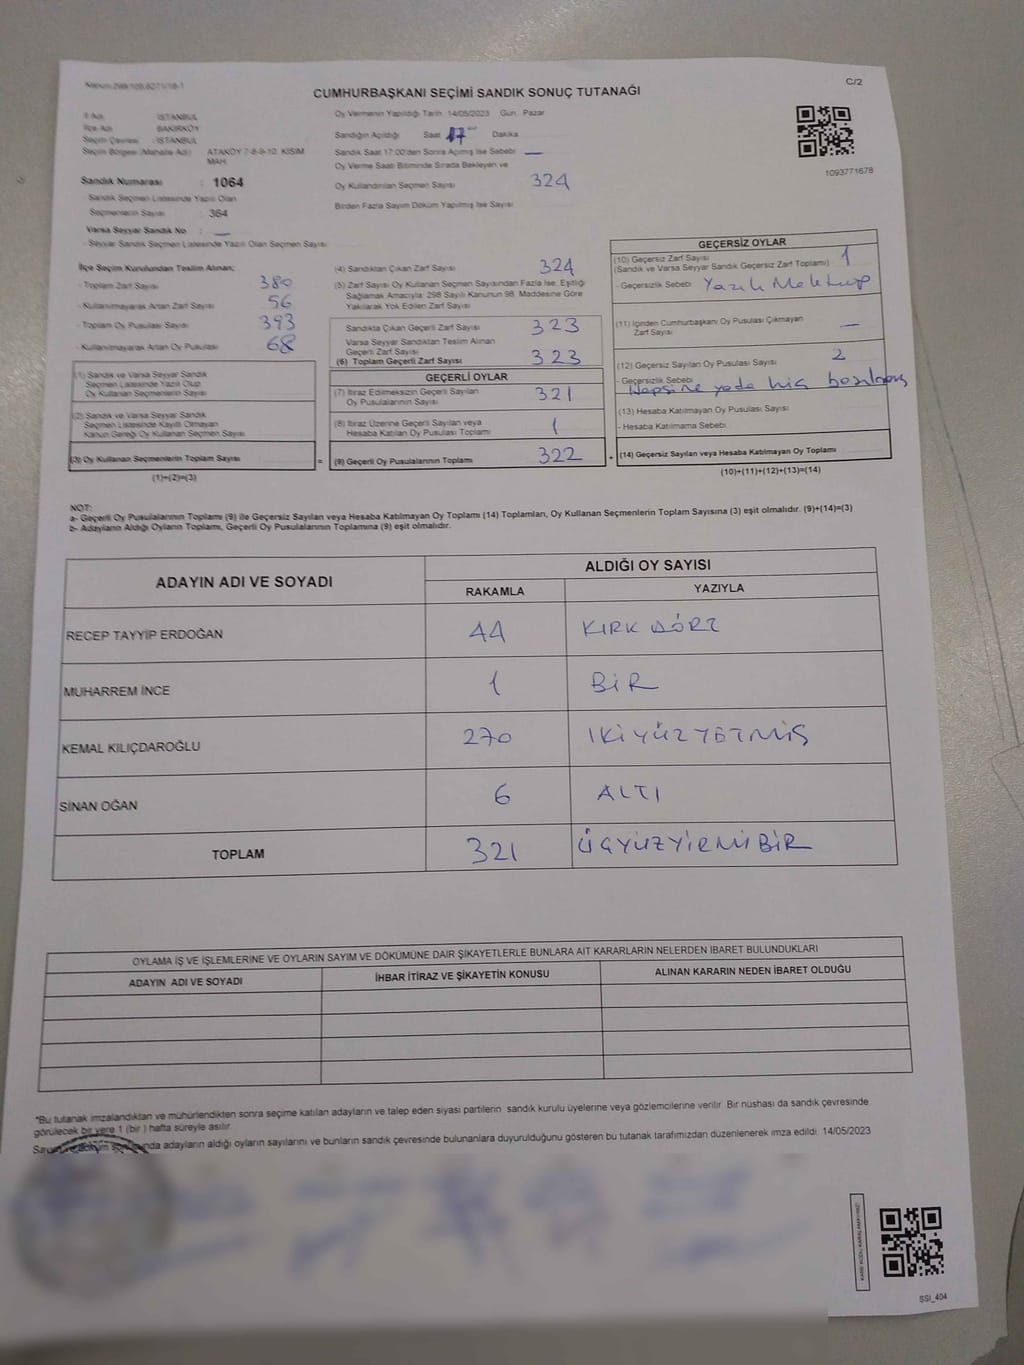 C/2
CUMHURBAŞKANI SEÇİMİ SANDIK SONUÇ TUTANAĞI
İl Adı : İSTANBUL
İlçe Adı : BAKIRKÖY
Seçim Çevresi : İSTANBUL
Seçim Bölgesi (Mahalle Adı) : ATAKÖY 7-8-9-10. KISIM MAH.
Sandık Numarası : 1064
Sandık Seçmen Listesinde Yazılı Olan
Seçmenlerin Sayısı : 364
Varsa Seyyar Sandık No : —
- Seyyar Sandık Seçmen Listesinde Yazılı Olan Seçmen Sayısı
Oy Vermenin Yapıldığı Tarih 14/05/2023 Gün Pazar
Sandığın Açıldığı Saat 17 Dakika
Sandık Saat 17:00'den Sonra Açılmış İse Sebebi —
Oy Verme Saati Bitiminde Sırada Bekleyen ve
Oy Kullandırılan Seçmen Sayısı 324
Birden Fazla Sayım Döküm Yapılmış İse Sayısı
1093771678
İlçe Seçim Kurulundan Teslim Alınan;
- Toplam Zarf Sayısı 380
- Kullanılmayarak Artan Zarf Sayısı 56
- Toplam Oy Pusulası Sayısı 393
- Kullanılmayarak Artan Oy Pusulası 68
(1) Sandık ve Varsa Seyyar Sandık
Seçmen Listesinde Yazılı Olup
Oy Kullanan Seçmenlerin Sayısı
(2) Sandık ve Varsa Seyyar Sandık
Seçmen Listesinde Kayıtlı Olmayan
Kanun Gereği Oy Kullanan Seçmen Sayısı
(3) Oy Kullanan Seçmenlerin Toplam Sayısı =
(1)+(2)=(3)
(4) Sandıktan Çıkan Zarf Sayısı 324
(5) Zarf Sayısı Oy Kullanan Seçmen Sayısından Fazla İse, Eşitliği
Sağlamak Amacıyla; 298 Sayılı Kanunun 98. Maddesine Göre
Yakılarak Yok Edilen Zarf Sayısı
Sandıkta Çıkan Geçerli Zarf Sayısı 323
Varsa Seyyar Sandıktan Teslim Alınan
Geçerli Zarf Sayısı
(6) Toplam Geçerli Zarf Sayısı 323
GEÇERLİ OYLAR
(7) İtiraz Edilmeksizin Geçerli Sayılan
Oy Pusulalarının Sayısı 321
(8) İtiraz Üzerine Geçerli Sayılan veya
Hesaba Katılan Oy Pusulası Toplamı 1
(9) Geçerli Oy Pusulalarının Toplamı 322 +
GEÇERSİZ OYLAR
(10) Geçersiz Zarf Sayısı 1
(Sandık ve Varsa Seyyar Sandık Geçersiz Zarf Toplamı)
- Geçersizlik Sebebi Yazılı Mektup
(11) İçinden Cumhurbaşkanı Oy Pusulası Çıkmayan
Zarf Sayısı —
(12) Geçersiz Sayılan Oy Pusulası Sayısı 2
- Geçersizlik Sebebi
Hepsine yada hiç
(13) Hesaba Katılmayan Oy Pusulası Sayısı
- Hesaba Katılmama Sebebi
(14) Geçersiz Sayılan veya Hesaba Katılmayan Oy Toplamı
(10)+(11)+(12)+(13)=(14)
NOT:
a- Geçerli Oy Pusulalarının Toplamı (9) ile Geçersiz Sayılan veya Hesaba Katılmayan Oy Toplamı (14) Toplamları, Oy Kullanan Seçmenlerin Toplam Sayısına (3) eşit olmalıdır. (9)+(14)=(3)
b- Adayların Aldığı Oyların Toplamı, Geçerli Oy Pusulalarının Toplamına (9) eşit olmalıdır.
ADAYIN ADI VE SOYADI
ALDIĞI OY SAYISI
RAKAMLA YAZIYLA
RECEP TAYYİP ERDOĞAN 44 KIRK DÖRT
MUHARREM İNCE 1 BİR
KEMAL KILIÇDAROĞLU 270 IKİYÜZYETMİŞ
SİNAN OĞAN 6 ALTI
TOPLAM 321 ÜÇYÜZYİRMİBİR
OYLAMA İŞ VE İŞLEMLERİNE VE OYLARIN SAYIM VE DÖKÜMÜNE DAİR ŞİKAYETLERLE BUNLARA AİT KARARLARIN NELERDEN İBARET BULUNDUKLARI
ADAYIN ADI VE SOYADI İHBAR İTİRAZ VE ŞİKAYETİN KONUSU ALINAN KARARIN NEDEN İBARET OLDUĞU
*Bu tutanak imzalandıktan ve mühürlendikten sonra seçime katılan adayların ve talep eden siyasi partilerin sandık kurulu üyelerine veya gözlemcilerine verilir. Bir nüshası da sandık çevresinde
görülecek bir yere 1 (bir) hafta süreyle asılır.
adayların aldığı oyların sayılarını ve bunların sandık çevresinde bulunanlara duyurulduğunu gösteren bu tutanak tarafımızdan düzenlenerek imza edildi. 14/05/2023
SSI_404